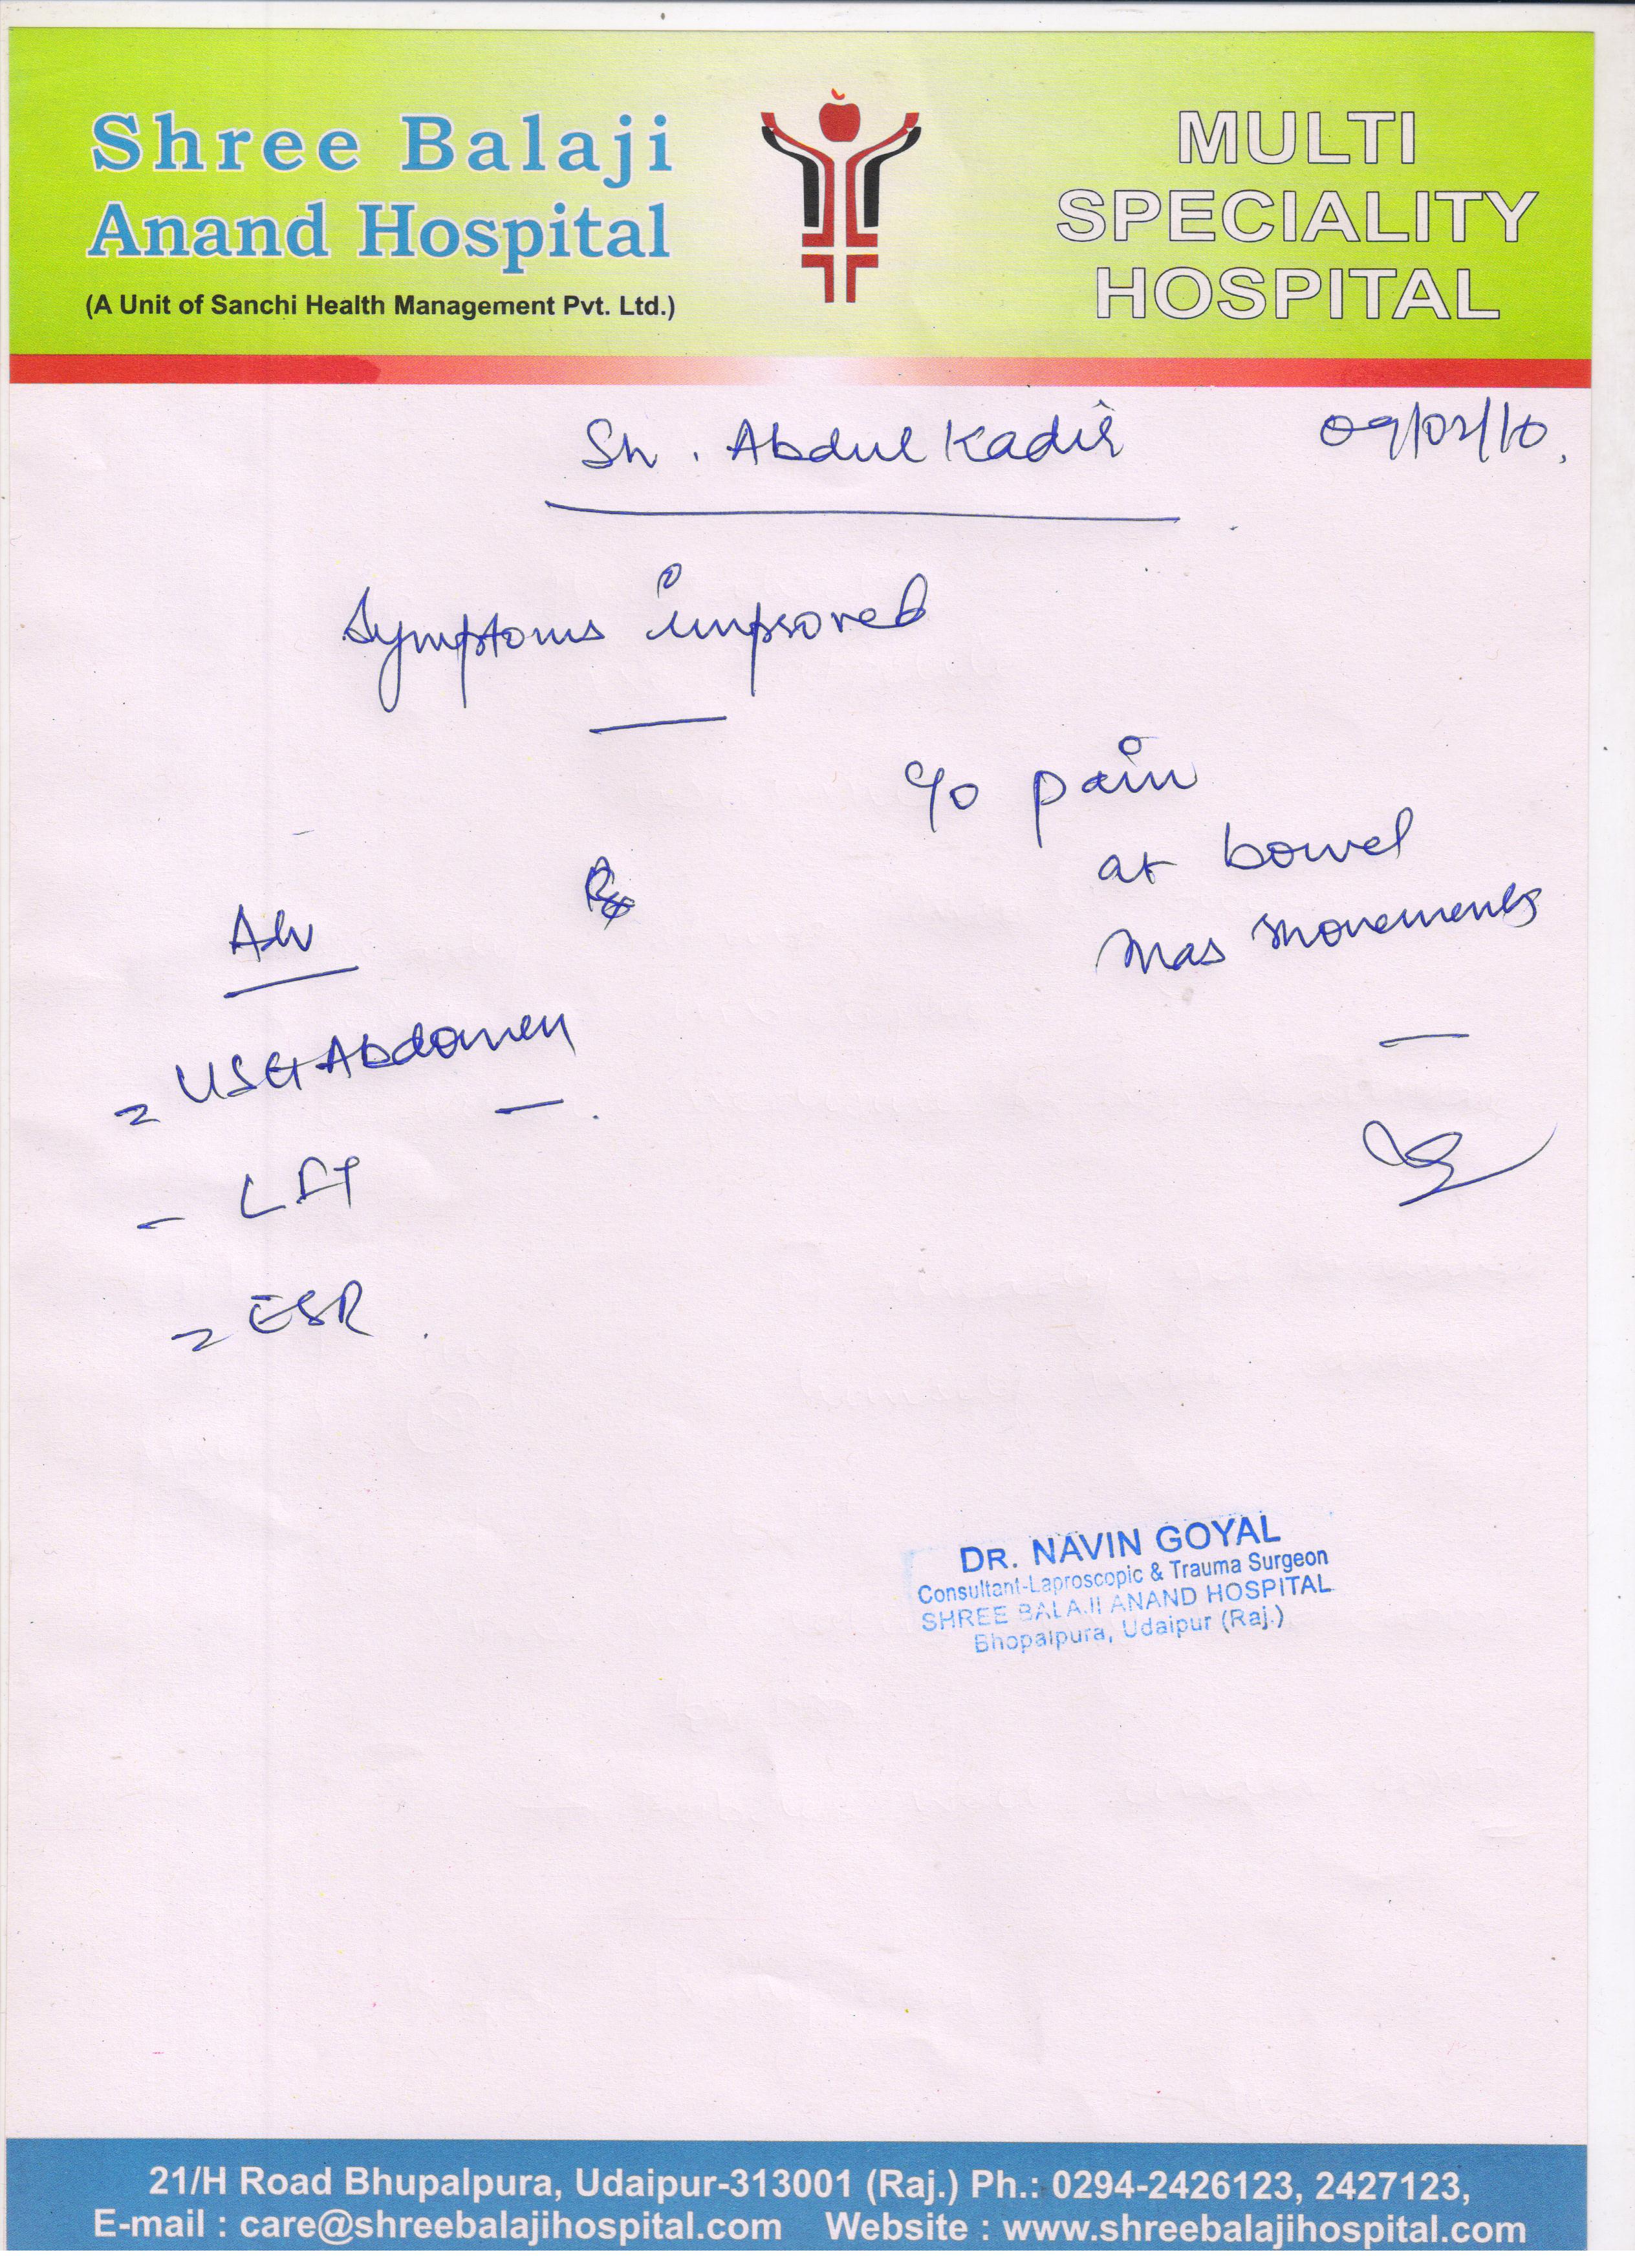 Shree Balaji
Anand Hospital
(A Unit of Sanchi Health Management Pvt. Ltd.)
MULTI
SPECIALITY
HOSPITAL
Sh. Abdul Kadir 09/02/10.
Symptoms improved
c/o pain
at bowel
movements
Rx
Adv
USG Abdomen
- LFT
ESR
DR. NAVIN GOYAL
Consultant-Laproscopic & Trauma Surgeon
SHREE BALAJI ANAND HOSPITAL
Bhopalpura, Udaipur (Raj.)
21/H Road Bhupalpura, Udaipur-313001 (Raj.) Ph.: 0294-2426123, 2427123,
E-mail : care@shreebalajihospital.com Website : www.shreebalajihospital.com